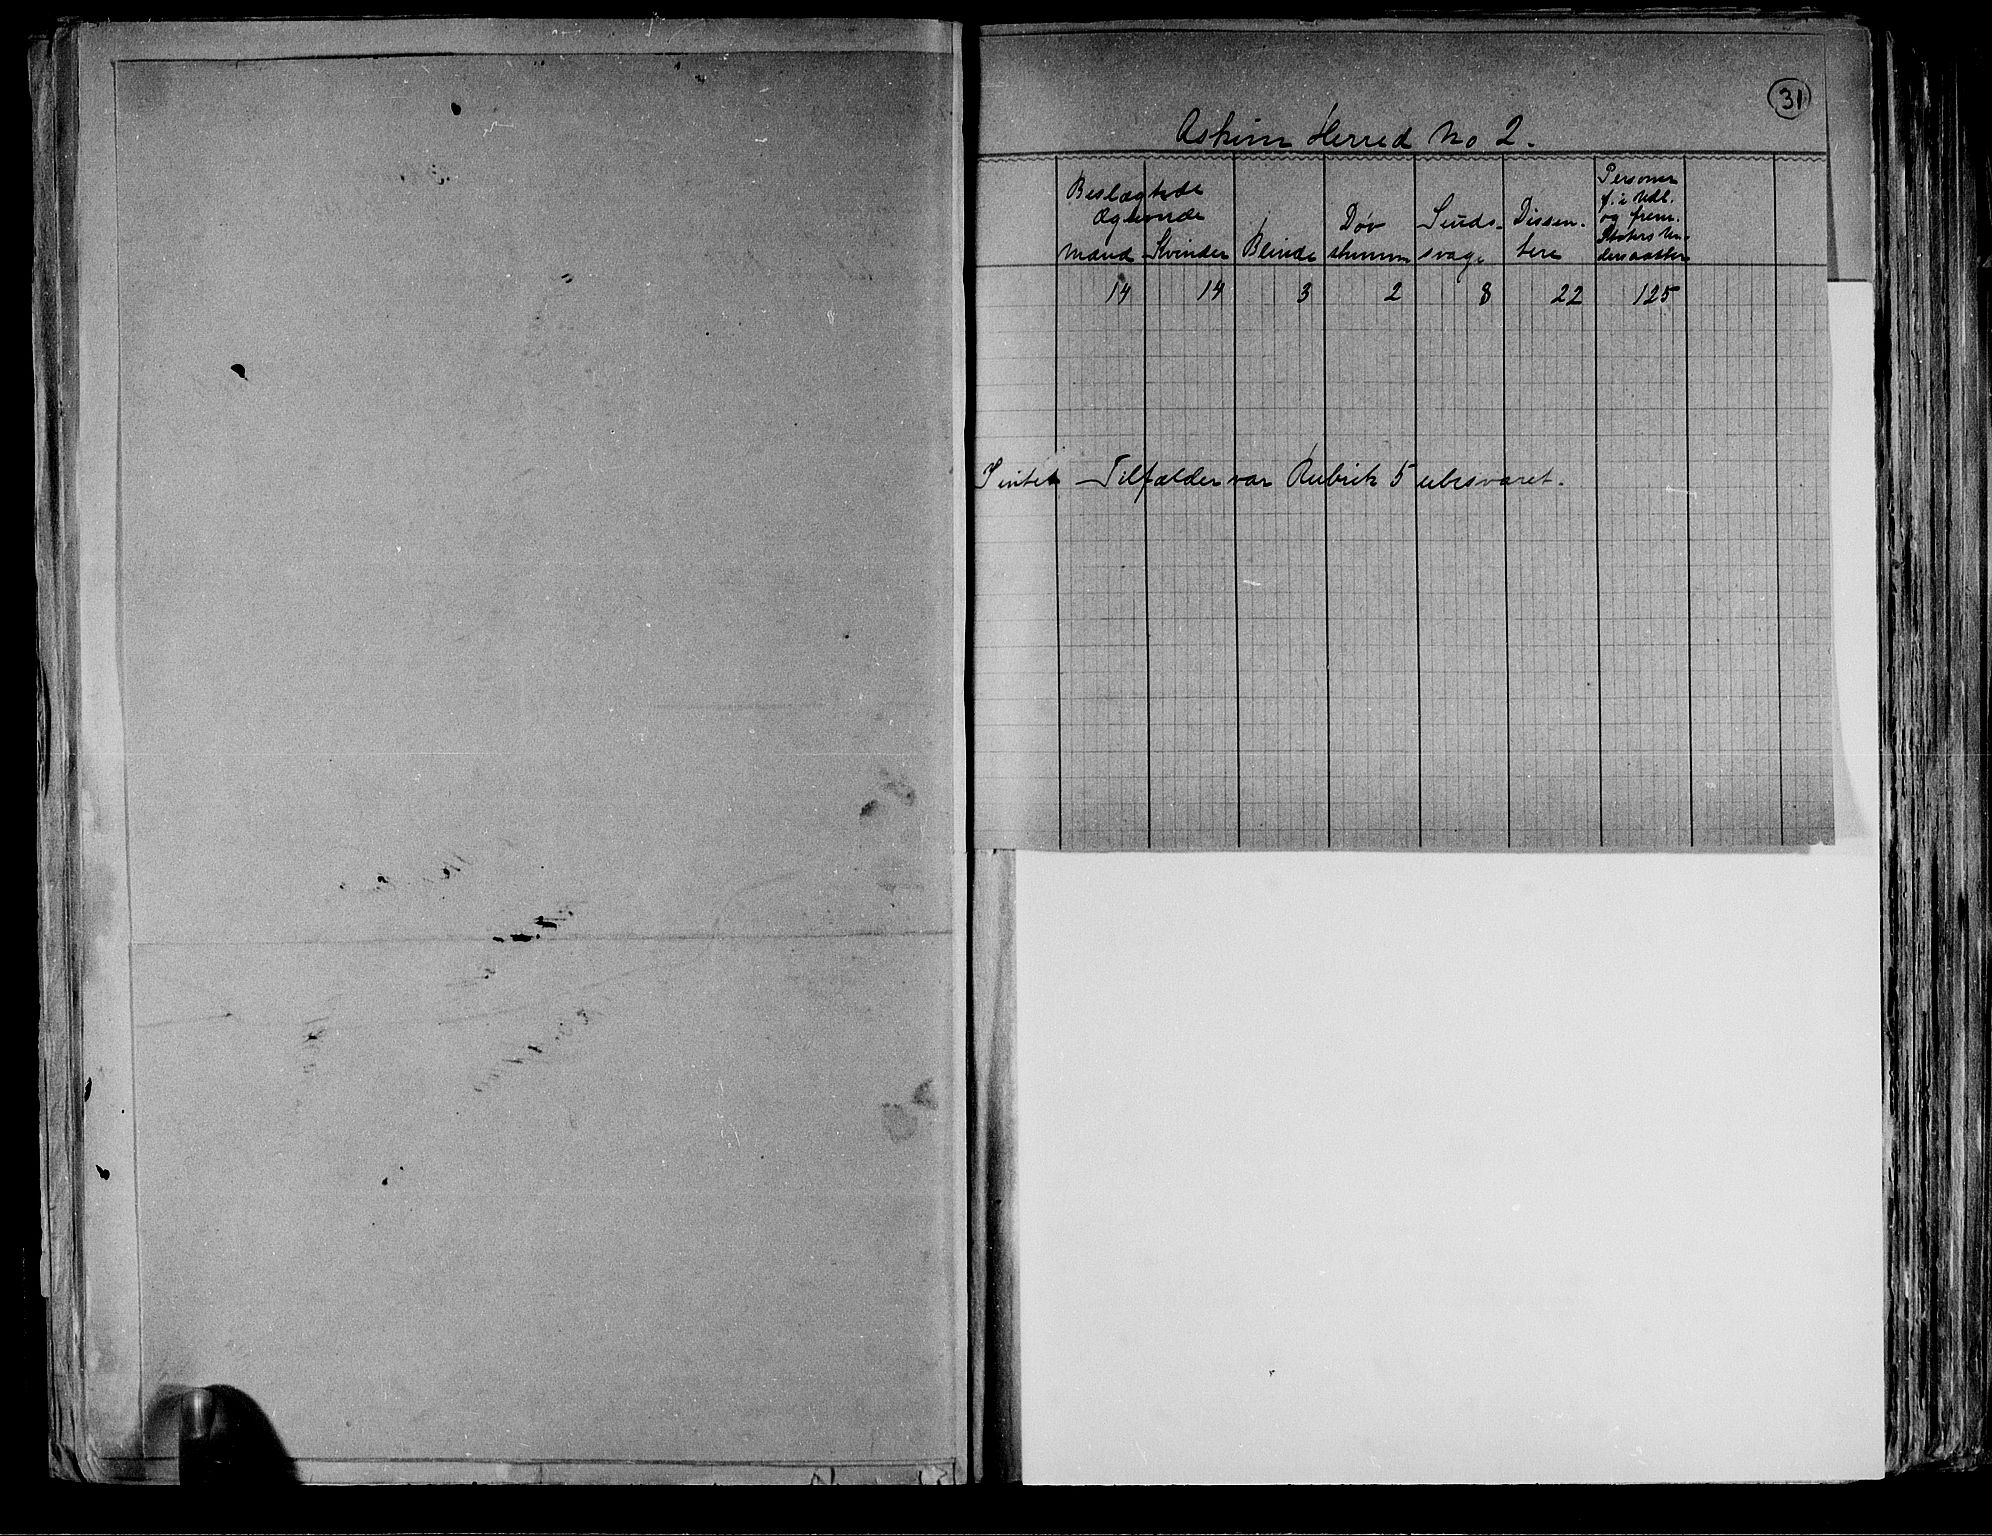 31
Askim Herred No 2.
Beslægtede Ægteviede
Mænd
Kvinder
Blinde
Døv stumme
Sinds- svage
Dissen- tere
Personer f. i Udl. og frem. Staters Un- dersaatter
14 14 3 2 8 22 125
I intet Tilfælde var Rubrik 5 ubesvaret.